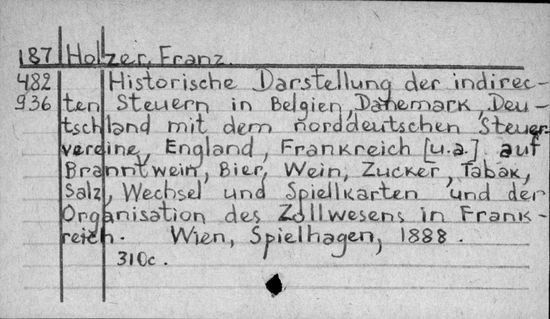 187 Holzer, Franz.
482 Historische Darstellung der indirec-
936 ten Steuern in Belgien, Dänemark, Deu-
tschland mit dem norddeutschen Steuer-
vereine, England, Frankreich [u.a.] auf
Branntwein, Bier, Wein, Zucker, Tabak,
Salz, Wechsel und Spiellkarten und der
Organisation des Zollwesens in Frank-
reich. Wien, Spielhagen, 1888.
310c.